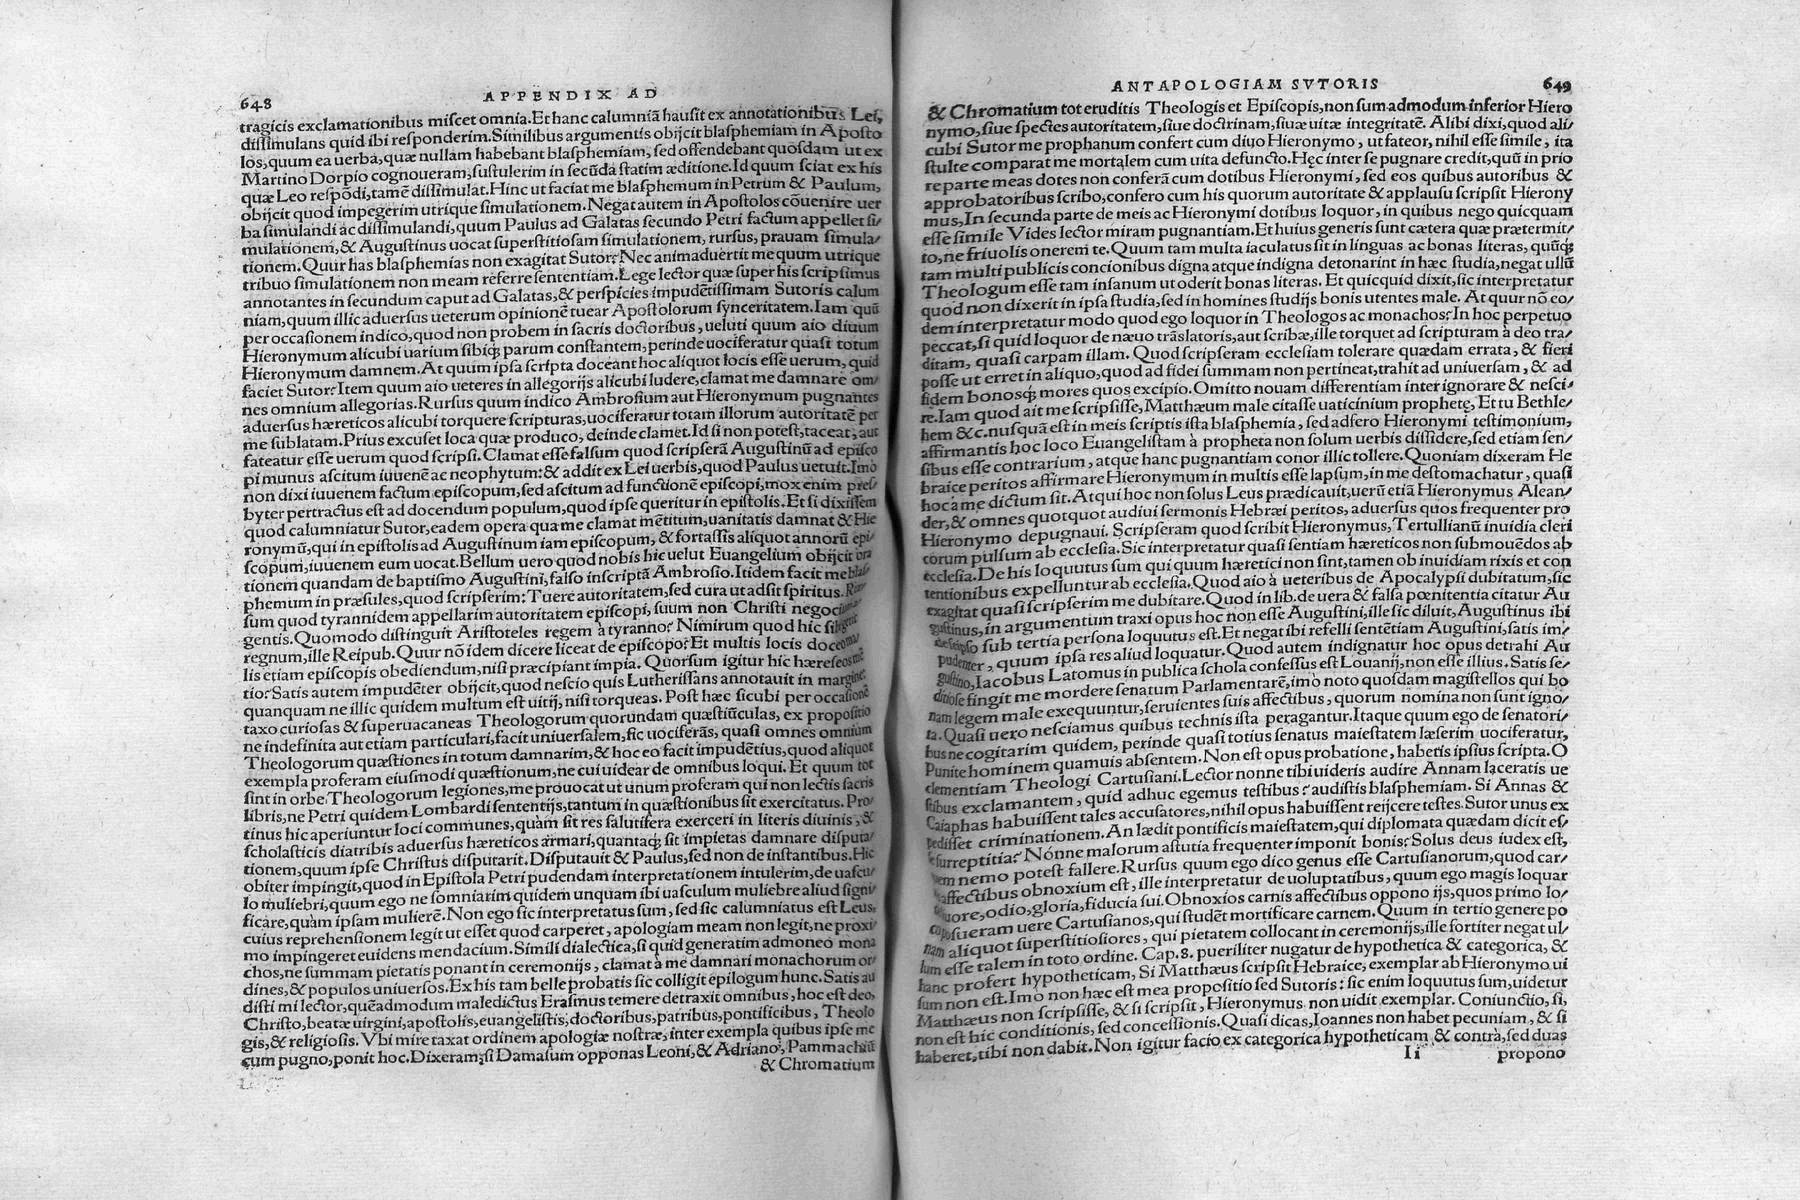 648 APPENDIX AD
tragicis exclamationibus miscet omnia. Et hanc calumniā hausit ex annotationibus Lei,
dissimulans quid ibi responderim. Similibus argumentis obijcit blasphemiam in Aposto
los, quum ea uerba, quæ nullam habebant blasphemiam, sed offendebant quosdam ut ex
Martino Dorpio cognoueram, sustulerim in secūda statim æditione. Id quum sciat ex his
quæ Leo respōdi, tamē dissimulat. Hinc ut faciat me blasphemum in Petrum & Paulum,
obijcit quod impegerim utrique simulationem. Negat autem in Apostolos cōuenire uer
ba simulandi ac dissimulandi, quum Paulus ad Galatas secundo Petri factum appellet si/
mulationem, & Augustinus uocat superstitiosam simulationem, rursus, prauam simula/
tionem. Quur has blasphemias non exagitat Sutor? Nec animaduertit me quum utrique
tribuo simulationem non meam referre sententiam. Lege lector quæ super his scripsimus
annotantes in secundum caput ad Galatas, & perspicies impudētissimam Sutoris calum
niam, quum illic aduersus ueterum opinionē tuear Apostolorum synceritatem. Iam quū
per occasionem indico, quod non probem in sacris doctoribus, ueluti quum aio diuum
Hieronymum alicubi uarium sibiq; parum constantem, perinde uociferatur quasi totum
Hieronymum damnem. At quum ipsa scripta doceant hoc aliquot locis esse uerum, quid
faciet Sutor? Item quum aio ueteres in allegorijs alicubi ludere, clamat me damnare om/
nes omnium allegorias. Rursus quum indico Ambrosium aut Hieronymum pugnantes
aduersus hæreticos alicubi torquere scripturas, uociferatur totam illorum autoritatē per
me sublatam. Prius excuset loca quæ produco, deinde clamet. Id si non potest, taceat, aut
fateatur esse uerum quod scripsi. Clamat esse falsum quod scripserā Augustinū ad episco
pi munus ascitum iuuenē ac neophytum: & addit ex Lei uerbis, quod Paulus uetuit. Imò
non dixi iuuenem factum episcopum, sed ascitum ad functionē episcopi, mox enim pres/
byter pertractus est ad docendum populum, quod ipse queritur in epistolis. Et si dixissem
quod calumniatur Sutor, eadem opera qua me clamat mētitum, uanitatis damnat & Hie
ronymū, qui in epistolis ad Augustinum iam episcopum, & fortassis aliquot annorū epi/
scopum, iuuenem eum uocat. Bellum uero quod nobis hic uelut Euangelium obijcit ora
tionem quandam de baptismo Augustini, falso inscriptā Ambrosio. Itidem facit me blas/
phemum in præsules, quod scripserim: Tuere autoritatem, sed cura ut adsit spiritus.
sum quod tyrannidem appellarim autoritatem episcopi, suum non Christi negocium
gentis. Quomodo distinguit Aristoteles regem à tyranno? Nimirum quod hic sibi
regnum, ille Reipub. Quur nō idem dicere liceat de episcopo? Et multis locis doceo
lis etiam episcopis obediendum, nisi præcipiant impia. Quorsum igitur hic hæreseos
tio? Satis autem impudēter obijcit, quod nescio quis Lutherissans annotauit in margine,
quanquam ne illic quidem multum est uitij, nisi torqueas. Post hæc sicubi per occasionē
taxo curiosas & superuacaneas Theologorum quorundam quæstiūculas, ex propositio
ne indefinita aut etiam particulari, facit uniuersalem, sic uociferās, quasi omnes omnium
Theologorum quæstiones in totum damnarim, & hoc eo facit impudētius, quod aliquot
exempla proferam eiusmodi quæstionum, ne cui uidear de omnibus loqui. Et quum tot
sint in orbe Theologorum legiones, me prouocat ut unum proferam qui non lectis sacris
libris, ne Petri quidem Lombardi sententijs, tantum in quæstionibus sit exercitatus. Pro/
tinus hic aperiuntur loci communes, quàm sit res salutifera exerceri in literis diuinis, &
scholasticis diatribis aduersus hæreticos armari, quantaq; sit impietas damnare disputa/
tionem, quum ipse Christus disputarit. Disputauit & Paulus, sed non de instantibus. Hic
obiter impingit, quod in Epistola Petri pudendam interpretationem intulerim, de uascu/
lo muliebri, quum ego ne somniarim quidem unquam ibi uasculum muliebre aliud signi/
ficare, quàm ipsam mulierē. Non ego sic interpretatus sum, sed sic calumniatus est Leus,
cuius reprehensionem legit ut esset quod carperet, apologiam meam non legit, ne proxi/
mo impingeret euidens mendacium. Simili dialectica, si quid generatim admoneo mona
chos, ne summam pietatis ponant in ceremonijs, clamat à me damnari monachorum or/
dines, & populos uniuersos. Ex his tam belle probatis sic colligit epilogum hunc. Satis au
disti mi lector, quēadmodum maledictus Erasmus temere detraxit omnibus, hoc est deo,
Christo, beatæ uirgini, apostolis, euangelistis, doctoribus, patribus, pontificibus, Theolo
gis, & religiosis. Vbi mire taxat ordinem apologiæ nostræ, inter exempla quibus ipse me
cum pugno, ponit hoc. Dixeram, si Damasum opponas Leoni, & Adriano, Pammachiū
& Chromatium
ANTAPOLOGIAM SVTORIS 649
& Chromatium tot eruditis Theologis et Episcopis, non sum admodum inferior Hiero
nymo, siue spectes autoritatem, siue doctrinam, siuæ uitæ integritatē. Alibi dixi, quod ali/
cubi Sutor me prophanum confert cum diuo Hieronymo, ut fateor, nihil esse simile, ita
stulte comparat me mortalem cum uita defuncto. Hęc inter se pugnare credit, quū in prio
re parte meas dotes non conferā cum dotibus Hieronymi, sed eos quibus autoribus &
approbatoribus scribo, confero cum his quorum autoritate & applausu scripsit Hierony
mus, In secunda parte de meis ac Hieronymi dotibus loquor, in quibus nego quicquam
esse simile Vides lector miram pugnantiam. Et huius generis sunt cætera quæ prætermit/
to, ne friuolis onerem te. Quum tam multa iaculatus sit in linguas ac bonas literas, quūq;
tam multi publicis concionibus digna atque indigna detonarint in hæc studia, negat ullū
Theologum esse tam insanum ut oderit bonas literas. Et quicquid dixit, sic interpretatur
quod non dixerit in ipsa studia, sed in homines studijs bonis utentes male. At quur nō eo/
dem interpretatur modo quod ego loquor in Theologos ac monachos? In hoc perpetuo
peccat, si quid loquor de næuo trāslatoris, aut scribæ, ille torquet ad scripturam à deo tra/
ditam, quasi carpam illam. Quod scripseram ecclesiam tolerare quædam errata, & fieri
posse ut erret in aliquo, quod ad fidei summam non pertineat, trahit ad uniuersam, & ad
fidem bonosq; mores quos excipio. Omitto nouam differentiam inter ignorare & nesci/
re. Iam quod ait me scripsisse, Matthæum male citasse uaticinium prophetę, Et tu Bethle/
hem &c. nusquā est in meis scriptis ista blasphemia, sed adfero Hieronymi testimonium,
affirmantis hoc loco Euangelistam à propheta non solum uerbis dissidere, sed etiam sen/
sibus esse contrarium, atque hanc pugnantiam conor illic tollere. Quoniam dixeram He
braice peritos affirmare Hieronymum in multis esse lapsum, in me destomachatur, quasi
hoc à me dictum sit. Atqui hoc non solus Leus prædicauit, uerū etiā Hieronymus Alean/
der, & omnes quotquot audiui sermonis Hebræi peritos, aduersus quos frequenter pro
Hieronymo depugnaui. Scripseram quod scribit Hieronymus, Tertullianū inuidia cleri
corum pulsum ab ecclesia. Sic interpretatur quasi sentiam hæreticos non submouēdos ab
ecclesia. De his loquutus sum qui quum hæretici non sint, tamen ob inuidiam rixis et con
tentionibus expelluntur ab ecclesia. Quod aio à ueteribus de Apocalypsi dubitatum, sic
exagitat quasi scripserim me dubitare. Quod in lib. de uera & falsa pœnitentia citatur Au
gustinus, in argumentum traxi opus hoc non esse Augustini, ille sic diluit, Augustinus ibi
de seipso sub tertia persona loquutus est. Et negat ibi refelli sentētiam Augustini, satis im/
pudenter, quum ipsa res aliud loquatur. Quod autem indignatur hoc opus detrahi Au
gustino, Iacobus Latomus in publica schola confessus est Louanij, non esse illius. Satis se/
ditiose fingit me mordere senatum Parlamentarē, imò noto quosdam magistellos qui bo
nam legem male exequuntur, seruientes suis affectibus, quorum nomina non sunt igno/
ta. Quasi uero nesciamus quibus technis ista peragantur. Itaque quum ego de senatori/
bus ne cogitarim quidem, perinde quasi totius senatus maiestatem læserim uociferatur,
Punite hominem quamuis absentem. Non est opus probatione, habetis ipsius scripta. O
clementiam Theologi Cartusiani. Lector nonne tibi uideris audire Annam laceratis ue
stibus exclamantem, quid adhuc egemus testibus? audistis blasphemiam. Si Annas &
Caiaphas habuissent tales accusatores, nihil opus habuissent reijcere testes. Sutor unus ex
pedisset criminationem. An lædit pontificis maiestatem, qui diplomata quædam dicit es/
se surreptitia? Nōnne malorum astutia frequenter imponit bonis? Solus deus iudex est,
quem nemo potest fallere. Rursus quum ego dico genus esse Cartusianorum, quod car/
affectibus obnoxium est, ille interpretatur de uoluptatibus, quum ego magis loquar
liuore, odio, gloria, fiducia sui. Obnoxios carnis affectibus oppono ijs, quos primo lo/
co posueram uere Cartusianos, qui studēt mortificare carnem. Quum in tertio genere po
nam aliquot superstitiosiores, qui pietatem collocant in ceremonijs, ille fortiter negat ul/
lum esse talem in toto ordine. Cap. 8. pueriliter nugatur de hypothetica & categorica, &
hanc profert hypotheticam, Si Matthæus scripsit Hebraice, exemplar ab Hieronymo ui
sum non est. Imo non hæc est mea propositio sed Sutoris: sic enim loquutus sum, uidetur
Matthæus non scripsisse, & si scripsit, Hieronymus non uidit exemplar. Coniunctio, si,
non est hic conditionis, sed concessionis. Quasi dicas, Ioannes non habet pecuniam, & si
haberet, tibi non dabit. Non igitur facio ex categorica hypotheticam & contrà, sed duas
Ii propono